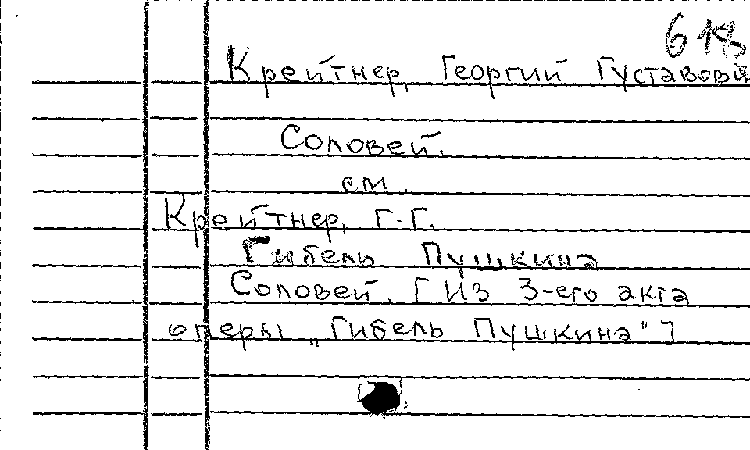 618
Крейтнер, Георгий Густавови
Соловей.
см.
Крейтнер, Г.Г.
Гибель Пушкина
Соловей. [Из 3-его акта
оперы „Гибель Пушкина"]